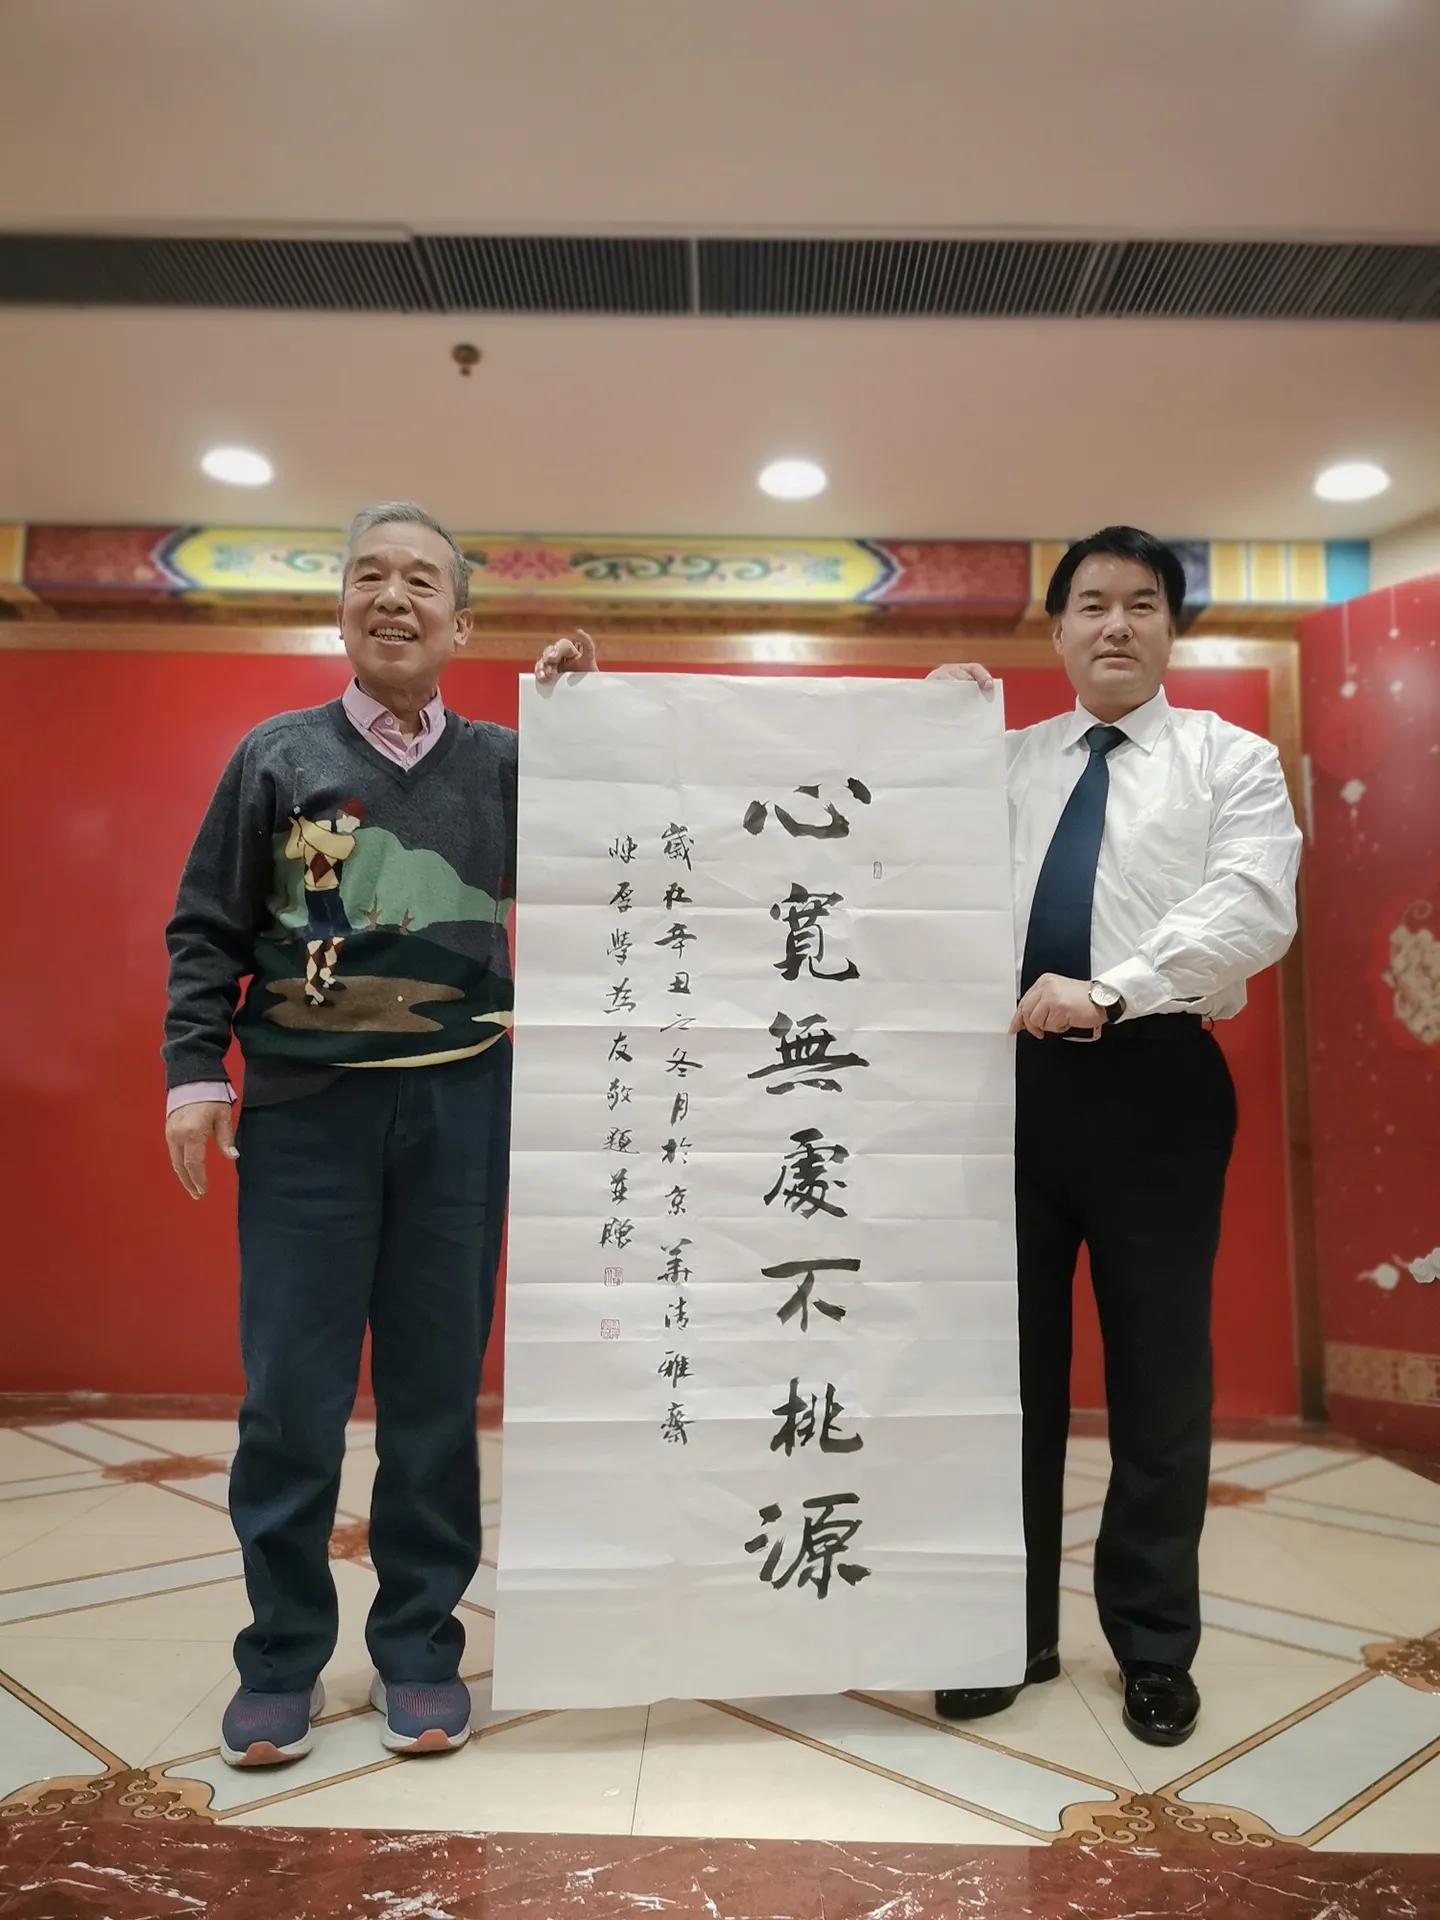 心寬無處不桃源
歲在辛丑之冬月於京華清雅齋
陳厚學為友敬題並贈